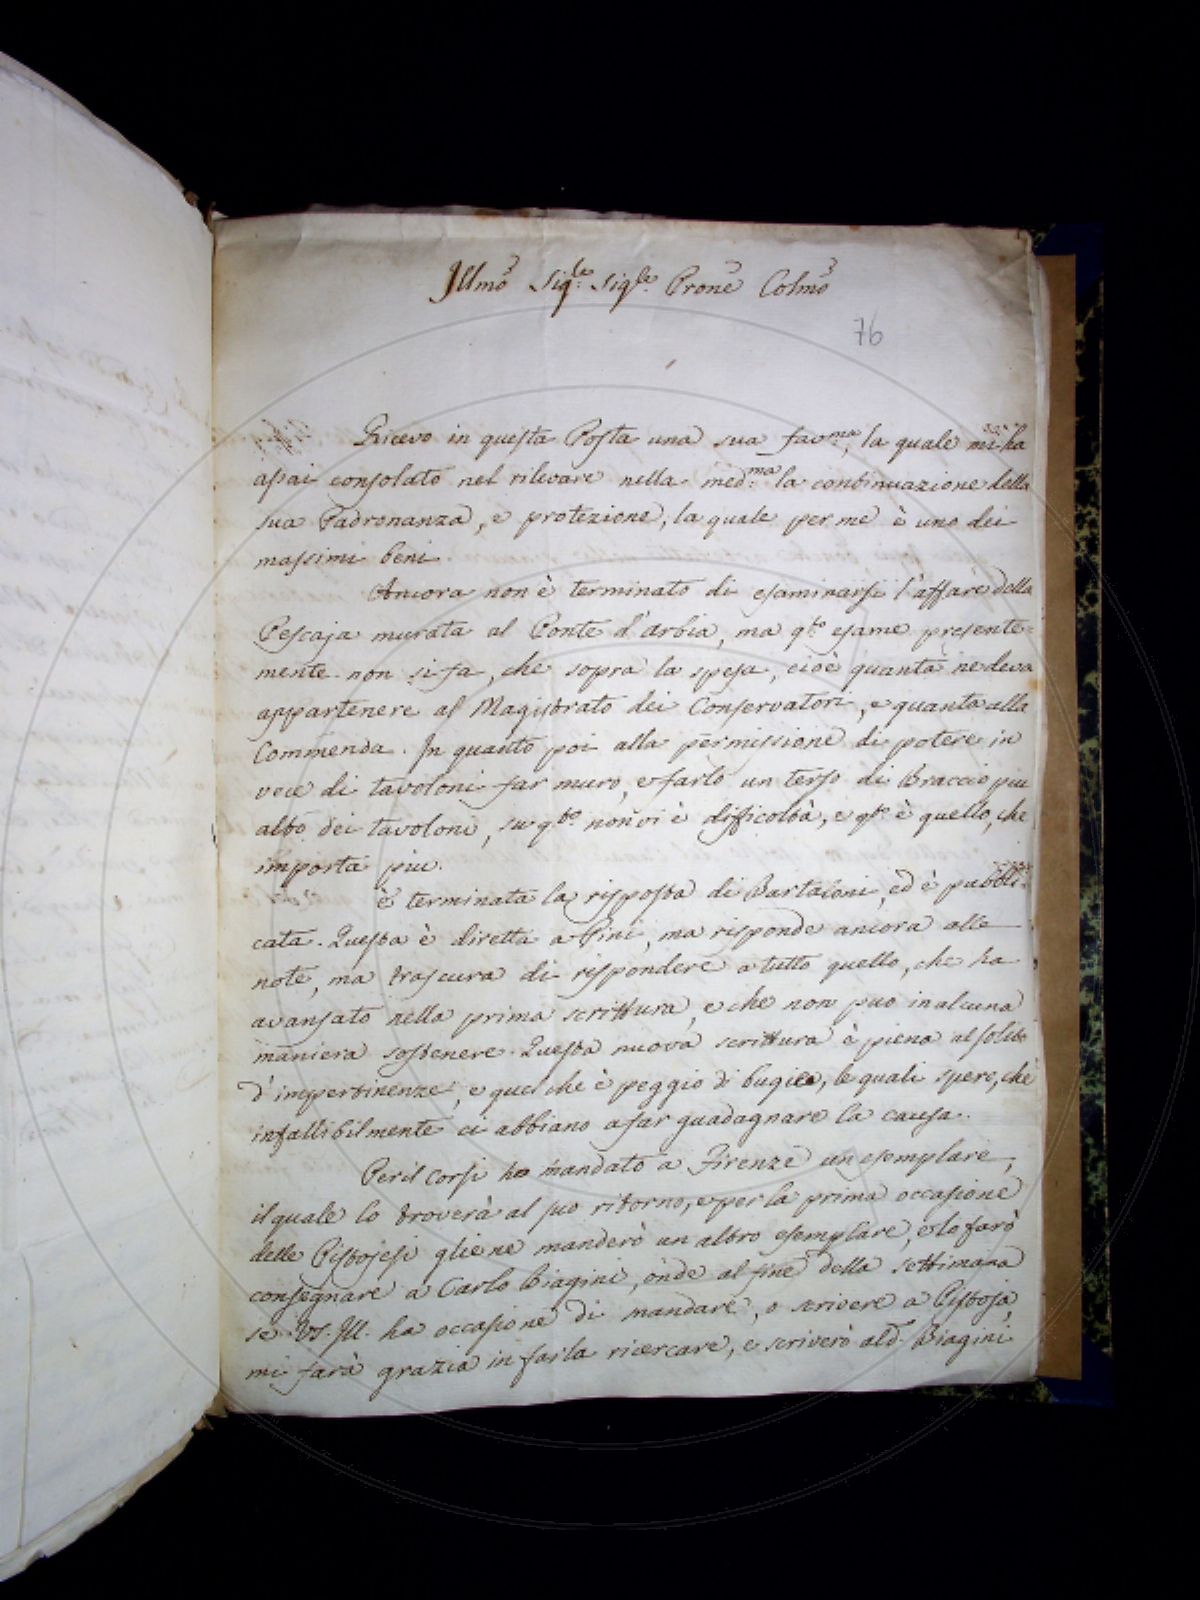 Illmo Sigle Sigle Prone Colmo
76
Ricevo in questa Posta una sua favma, la quale mi ha
assai consolato nel rilevare nella medma la continuazione della
sua Padronanza, e protezione, la quale per me è uno dei
massimi beni.
Ancora non è terminato di esaminarsi l'affare della
Pescaja murata al Ponte d'Arbia, ma qto esame presente=
mente non si fa, che sopra la spesa, cioè quanta ne deva
appartenere al Magistrato dei Conservatori, e quanta alla
Commenda. In quanto poi alla permissione di potere in
vece di tavoloni far muro, e farlo un terso di Braccio piu
alto dei tavoloni, su qto non vi è difficoltà, e qto è quello, che
importa piu.
è terminata la risposta di Bartaloni, ed è pubbli=
cata. Questa è diretta a Pini, ma risponde ancora alle
note, ma trascura di rispondere a tutto quello, che ha
avansato nella prima scrittura, e che non puo in alcuna
maniera sostenere. Questa nuova scrittura è piena al solito
d'impertinenze, e quel che è peggio di bugie, le quali spero, che
infallibilmente ci abbiano a far guadagnare la causa.
Per il Corsi ho mandato a Firenze un esemplare,
il quale lo troverà al suo ritorno, e per la prima occasione
delle Pistojesi gliene manderò un altro esemplare, e lo farò
consegnare a Carlo Biagini, onde al fine della settimana
se VS. Ill. ha occasione di mandare, o scrivere a Pistoja,
mi farà grazia in farla ricercare, e scriverò al d. Biagini